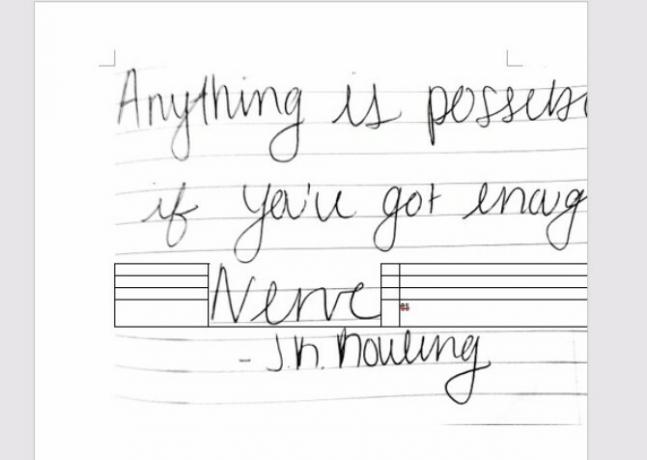 Anything is possib
if you've got enoug
Nerve
- J.K. Rowling